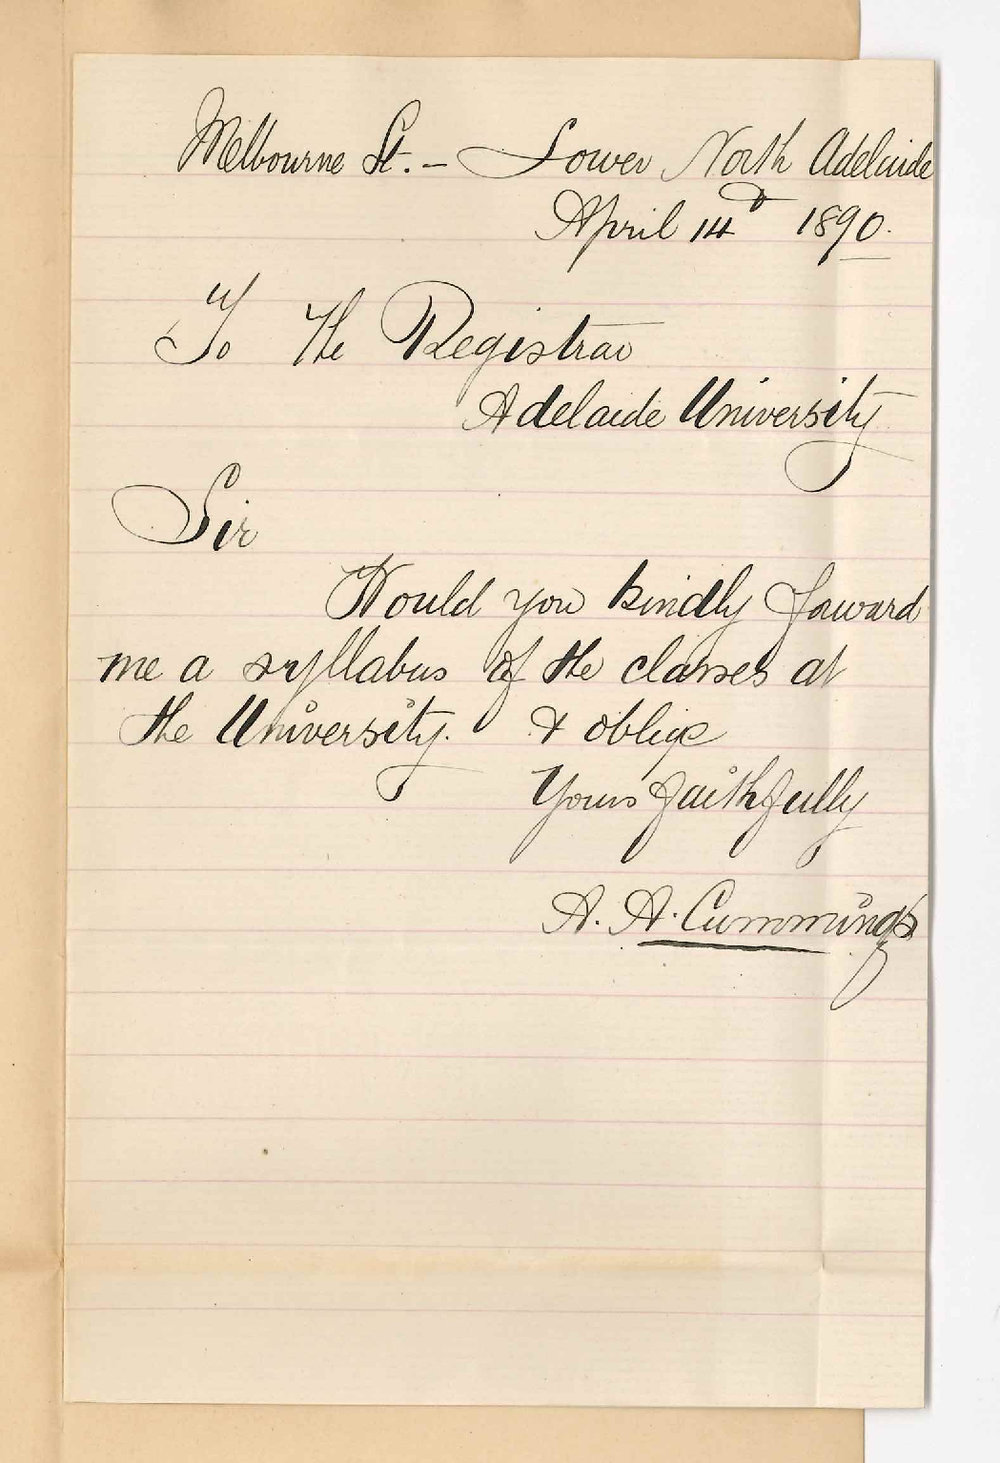 Melbourne St. – Lower North Adelaide
April 14 1890.
To The Registrar
Adelaide University
Sir
Would you kindly foward
me a syllabus of the classes at
the University. & oblige
Yours faithfully
A. A. Cummings